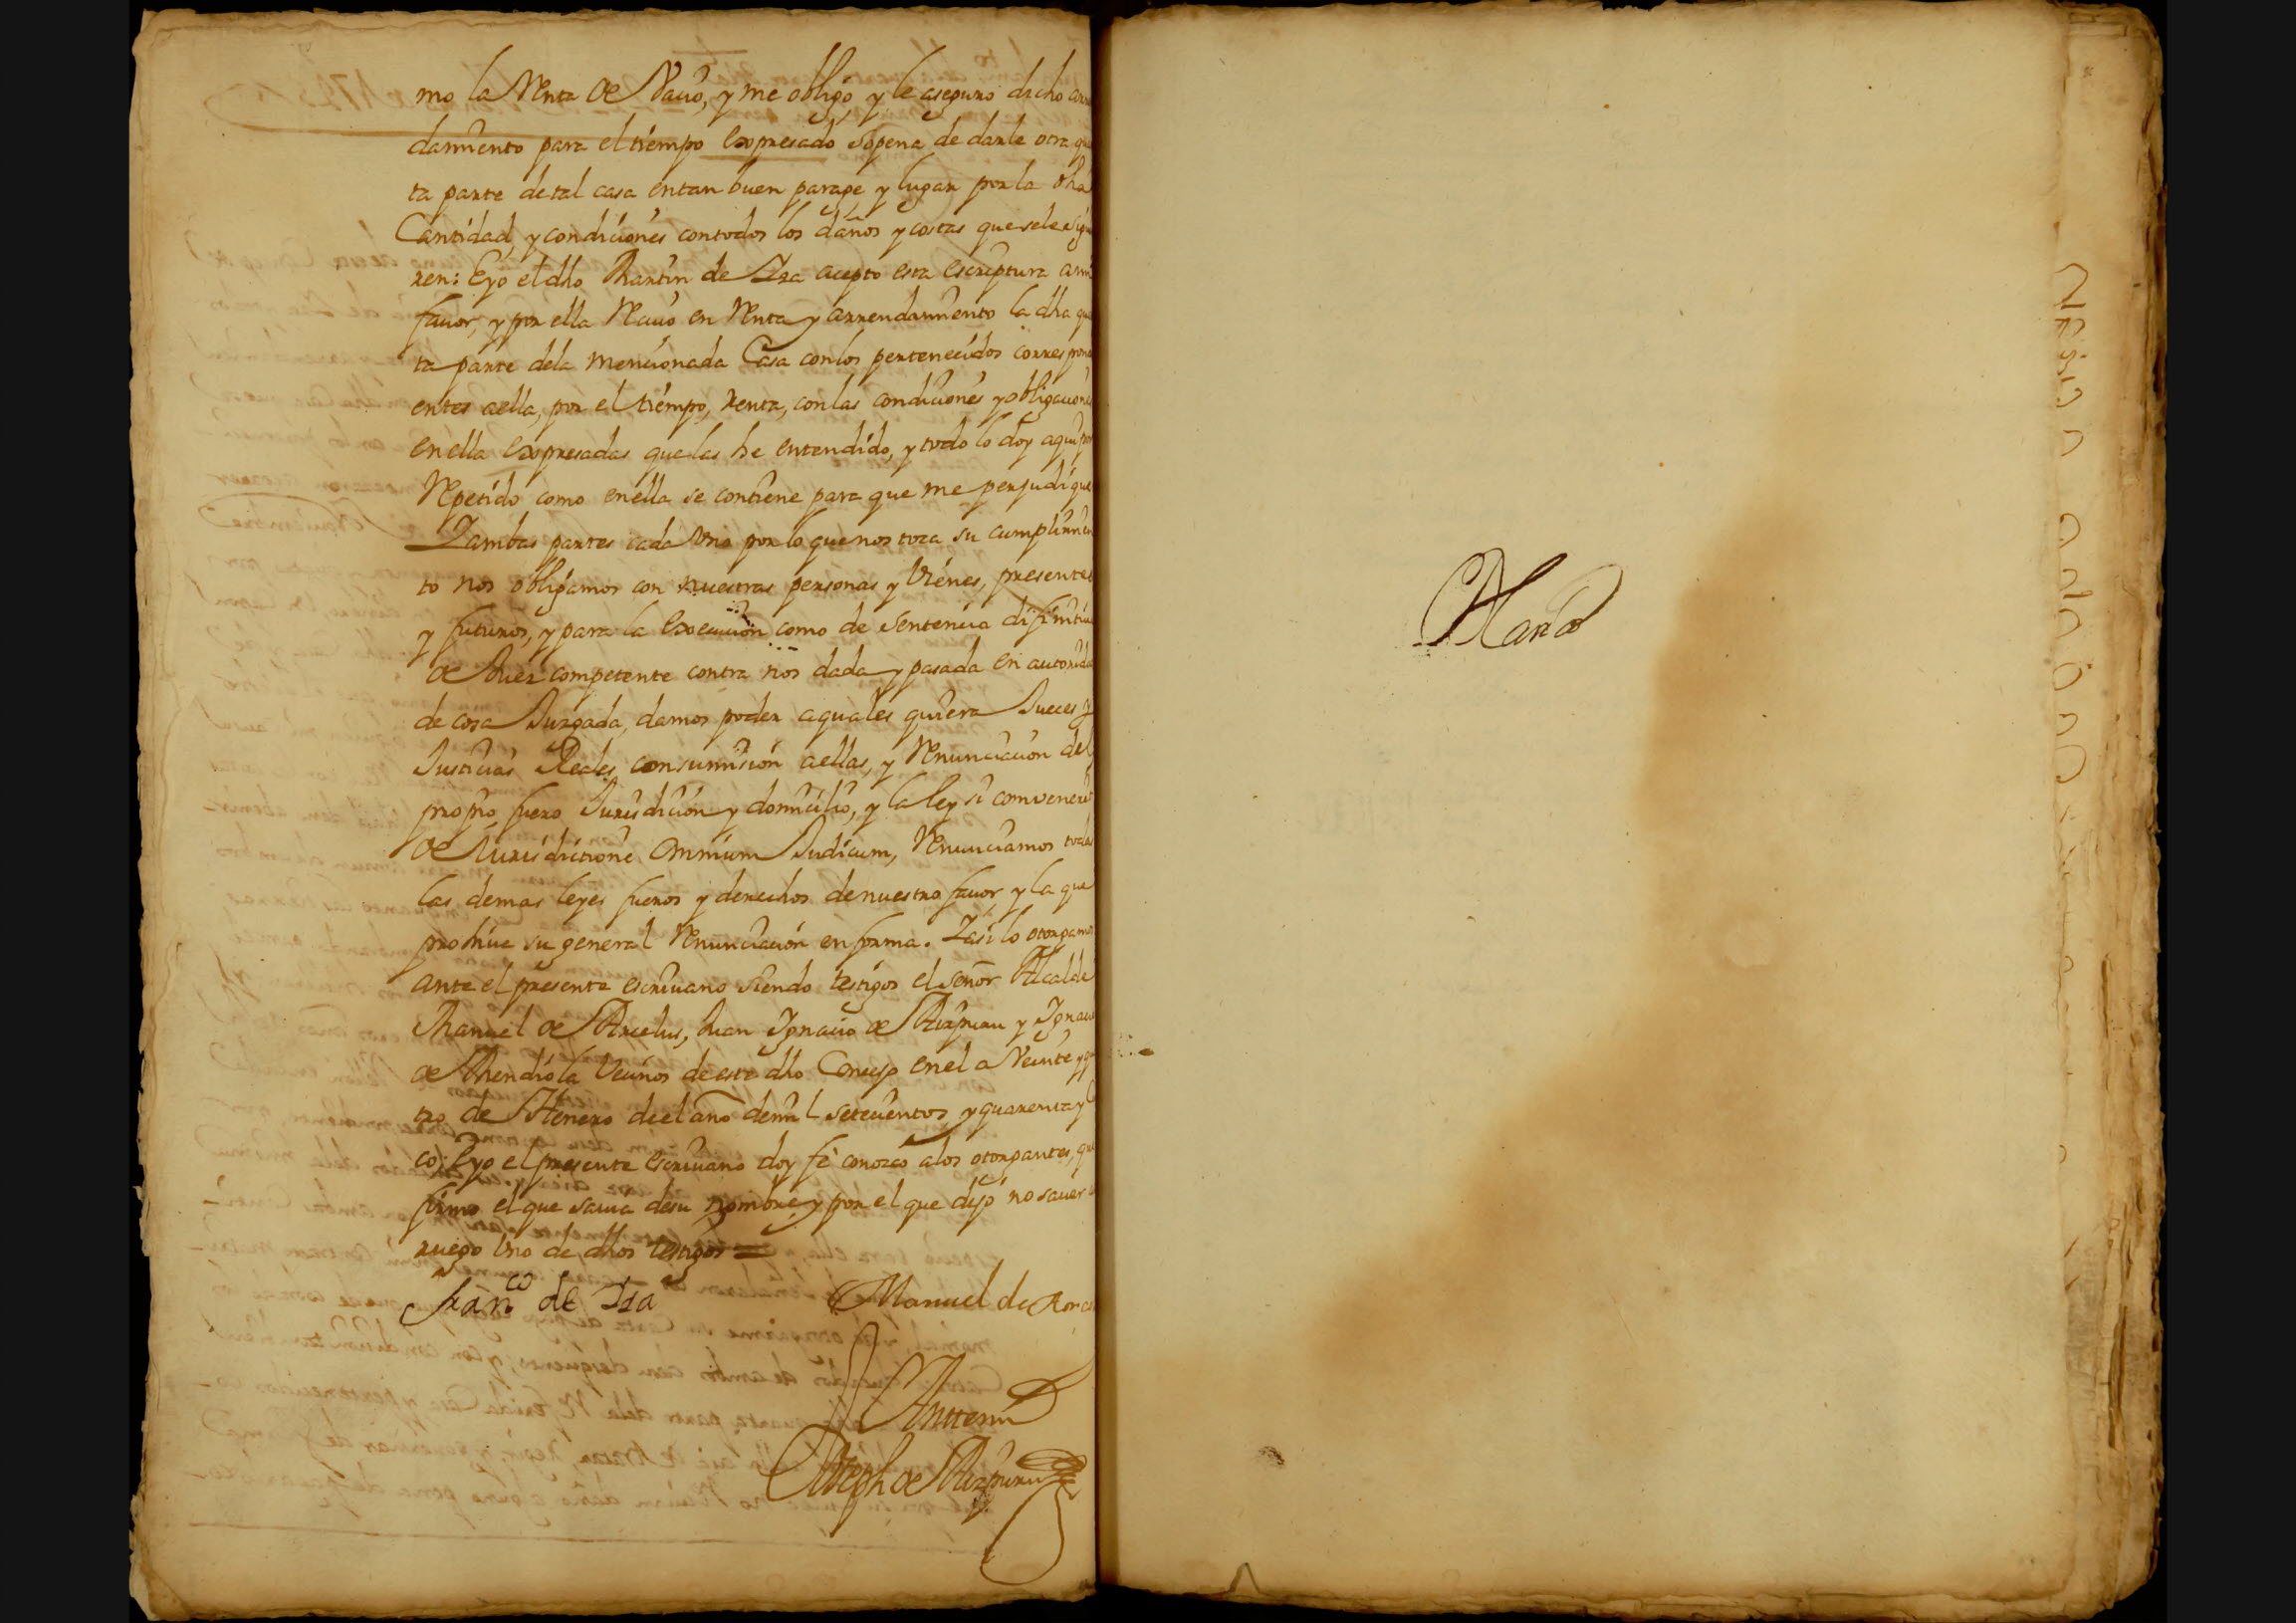 mo la Renta de Vacio, y me obligo y le aseguro dicho arren
damiento para el tiempo expresado sopena de darle otra qu
ta parte de tal casa en tan buen parage y lugar por la dha
Cantidad, y condiciones con todos los daños y costas que se le sigui
ren: Eyo el dho Martin de Iza acepto esta escriptura a mi
favor, y por ella Recivo en Renta y arrendamiento la dha qu
ta parte dela mencionada Casa con los pertenecidos correspond
entes a ella, por el tiempo, renta, con las condiciones y obligaciones
en ella expresadas que las he entendido, y todo lo doy aqui por
Repetido como en ella se contiene para que me perjudique
Y ambas partes cada Vno por lo que nos toca su cumplimien
to nos obligamos con nuestras personas y Vienes, presentes
y futuros, y para la execucion como de sentencia difinitiva
de Juez competente contra nos dada y pasada en autorida
de cosa Juzgada, damos poder a quales quiera Jueces y
Justicias Reales con sumision a ellas, y Renunciacion del
propio fuero Jurisdicion y domicilio, y la ley si convenerit
de Jurisdictione Omnium Judicum, Renunciamos todas
las demas leyes fueros y derechos de nuestro favor, y la que
prohive su general Renunciacion en forma. Y asi lo otorgamos
ante el presente escrivano siendo testigos el señor Alcalde
Manuel de Arcelus, Juan Ignacio de Aizpuru y Ignacio
de Mendiola Vecinos de este dho Concejo en el a Veinte y qu
tro de Henero de el año de mil setecientos y quarenta y
co; Eyo el presente escrivano doy fe conozco a los otorgantes, que
firmo el que savia de su nombre y por el que dijo no saver
ruego Vno de dhos testigos =
Franco de Iza Manuel de
Anttemi
Joseph de Aizpuru